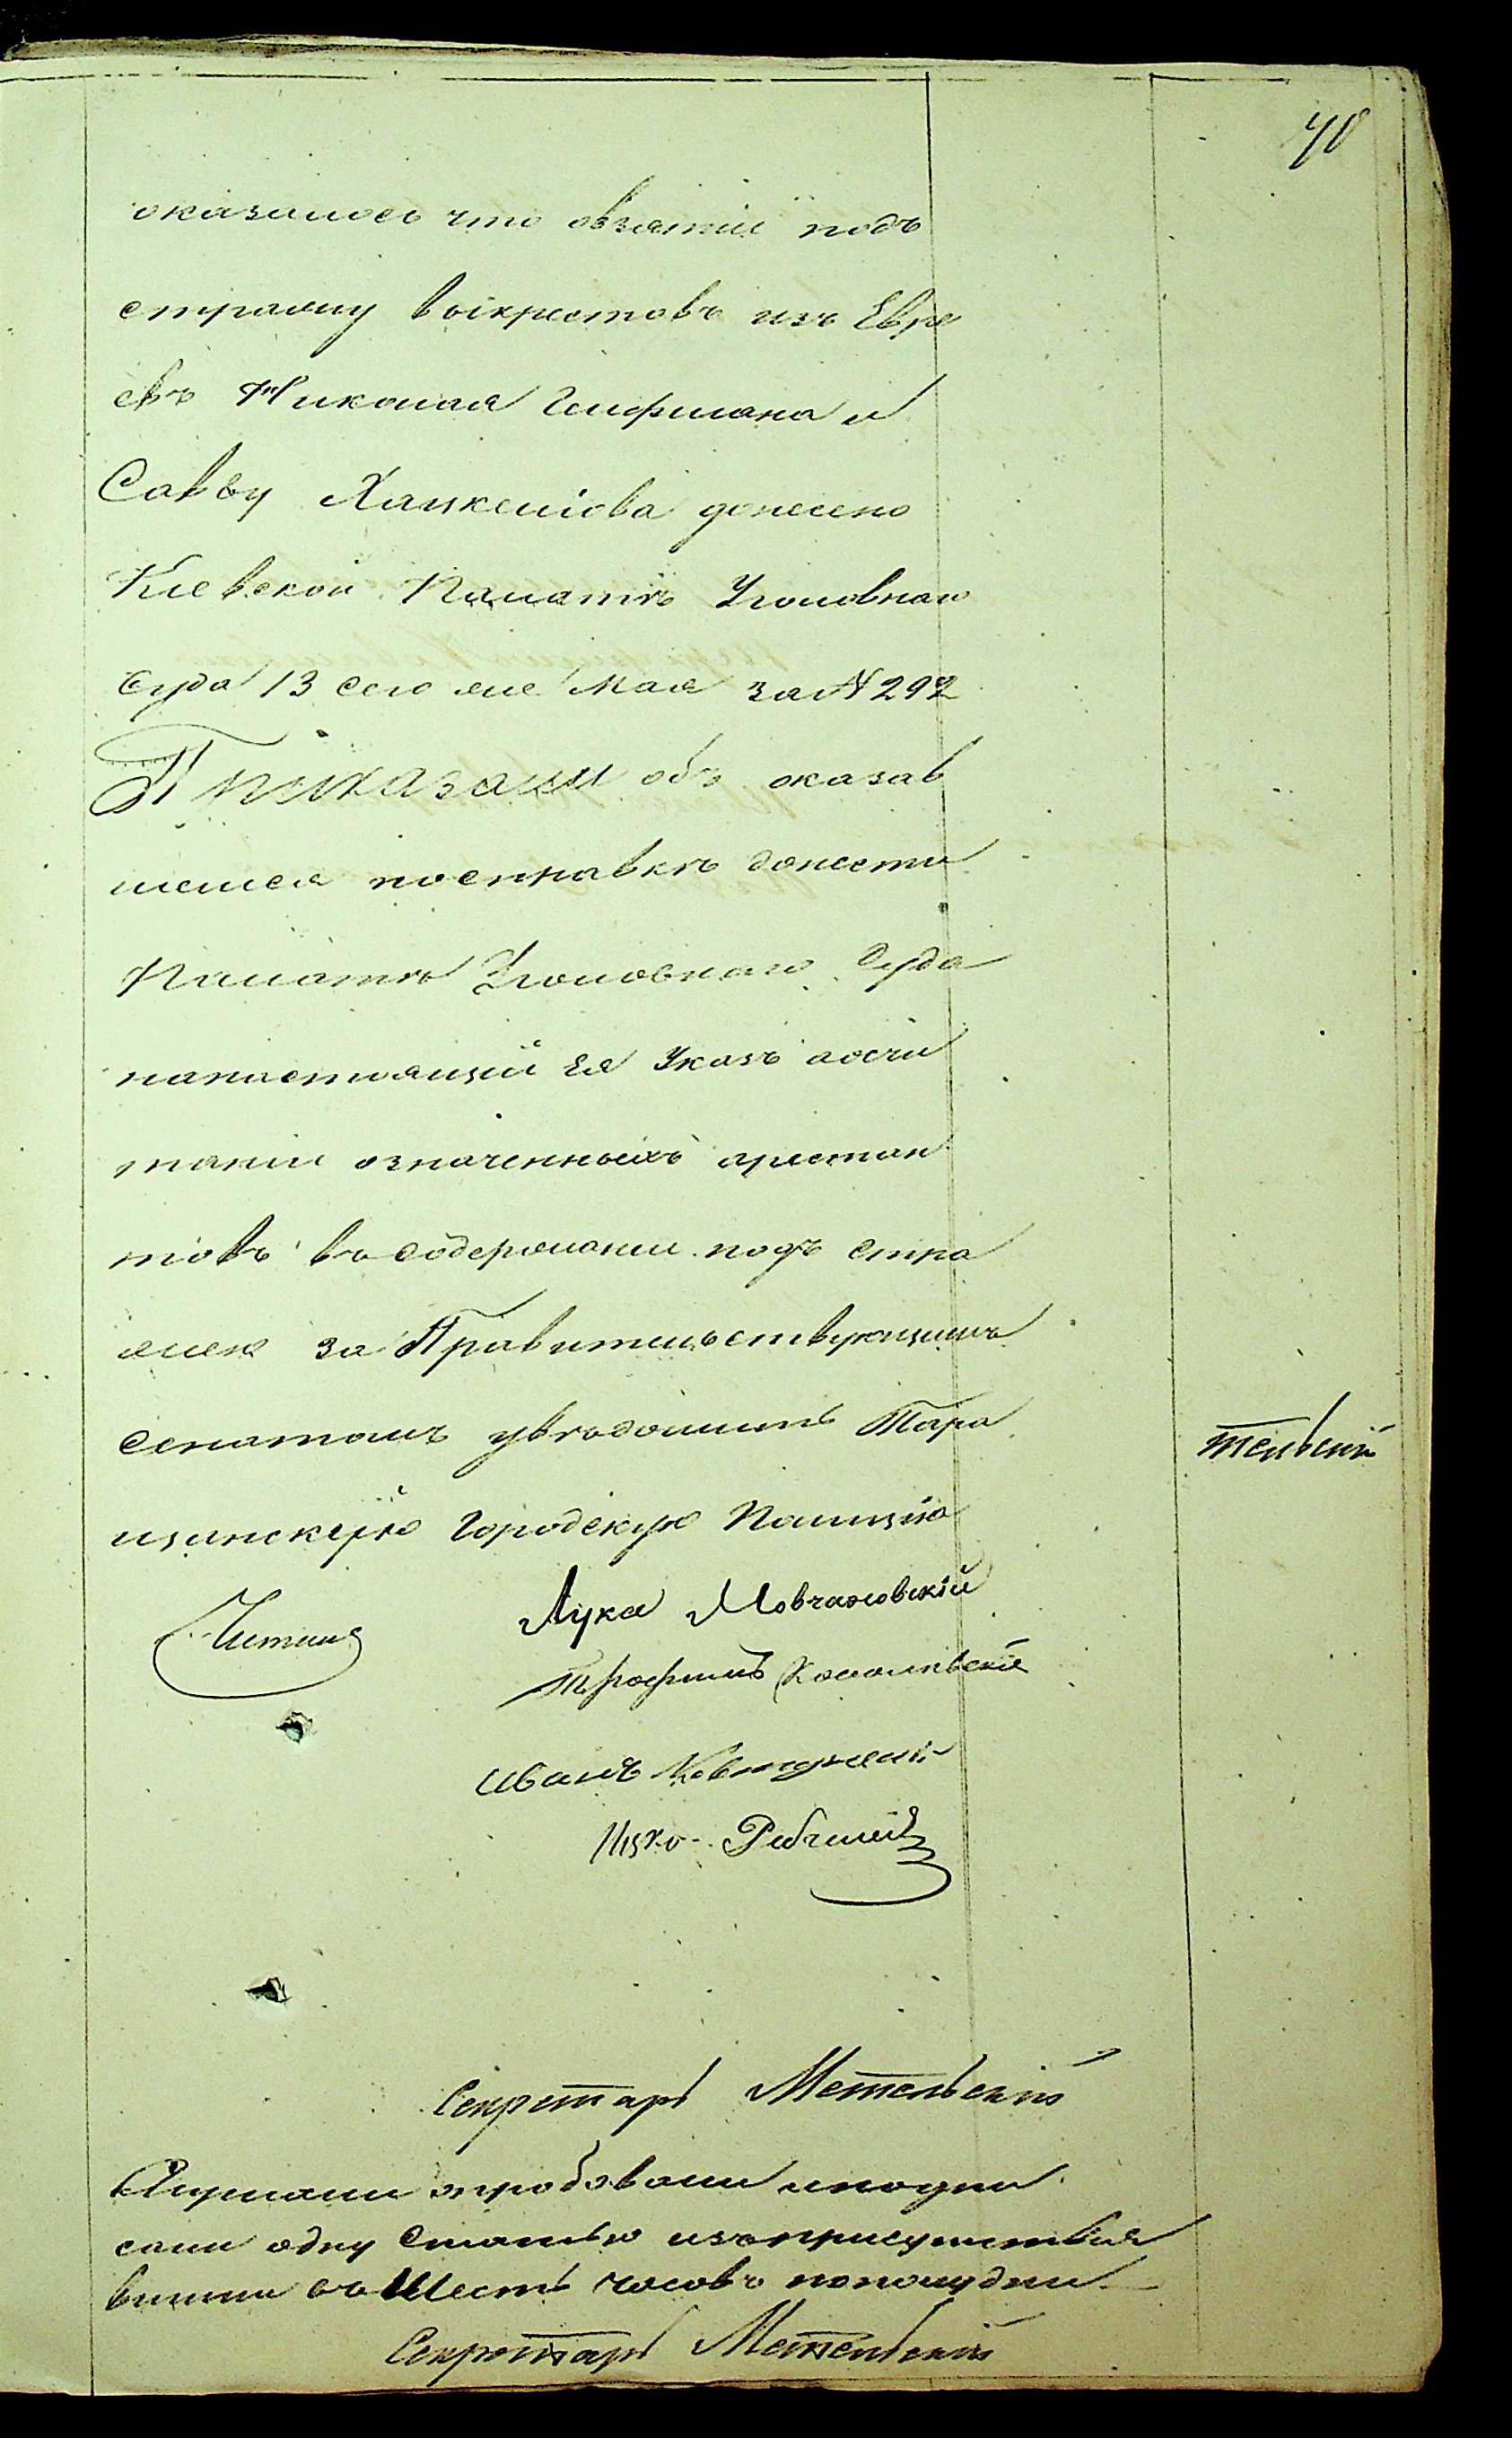 40
оказалось что овзятіи подъ
стражу выкрестовъ изъ Евре
евъ Николая Гелфмана и
Савву Хацкелюва донесено
Кіевской Палатѣ Уголовнаго
Суда 13 сего же мая за № 292
Приказали объ оказав
шемся посправкѣ донести
Палатѣ Уголовнаго Суда
нанастоящій Ея Указъ аосчи
таніи означенныхъ арестан
товъ въ содержаніи подъ стра
жею за Правительствующимъ
Сенатомъ увѣдомить Тара
щанскую Городскую Полицію
тельскій
Читалъ
Лука Мовчановскій
Трофимъ Ковалевскій
Иванъ
Ицко
Секретарь Метельскій
Журналы пробовали иподпи
сали одну Статью изъприсутствія
вышли въ Шесть часовъ пополудни
Секретарь Метельскій